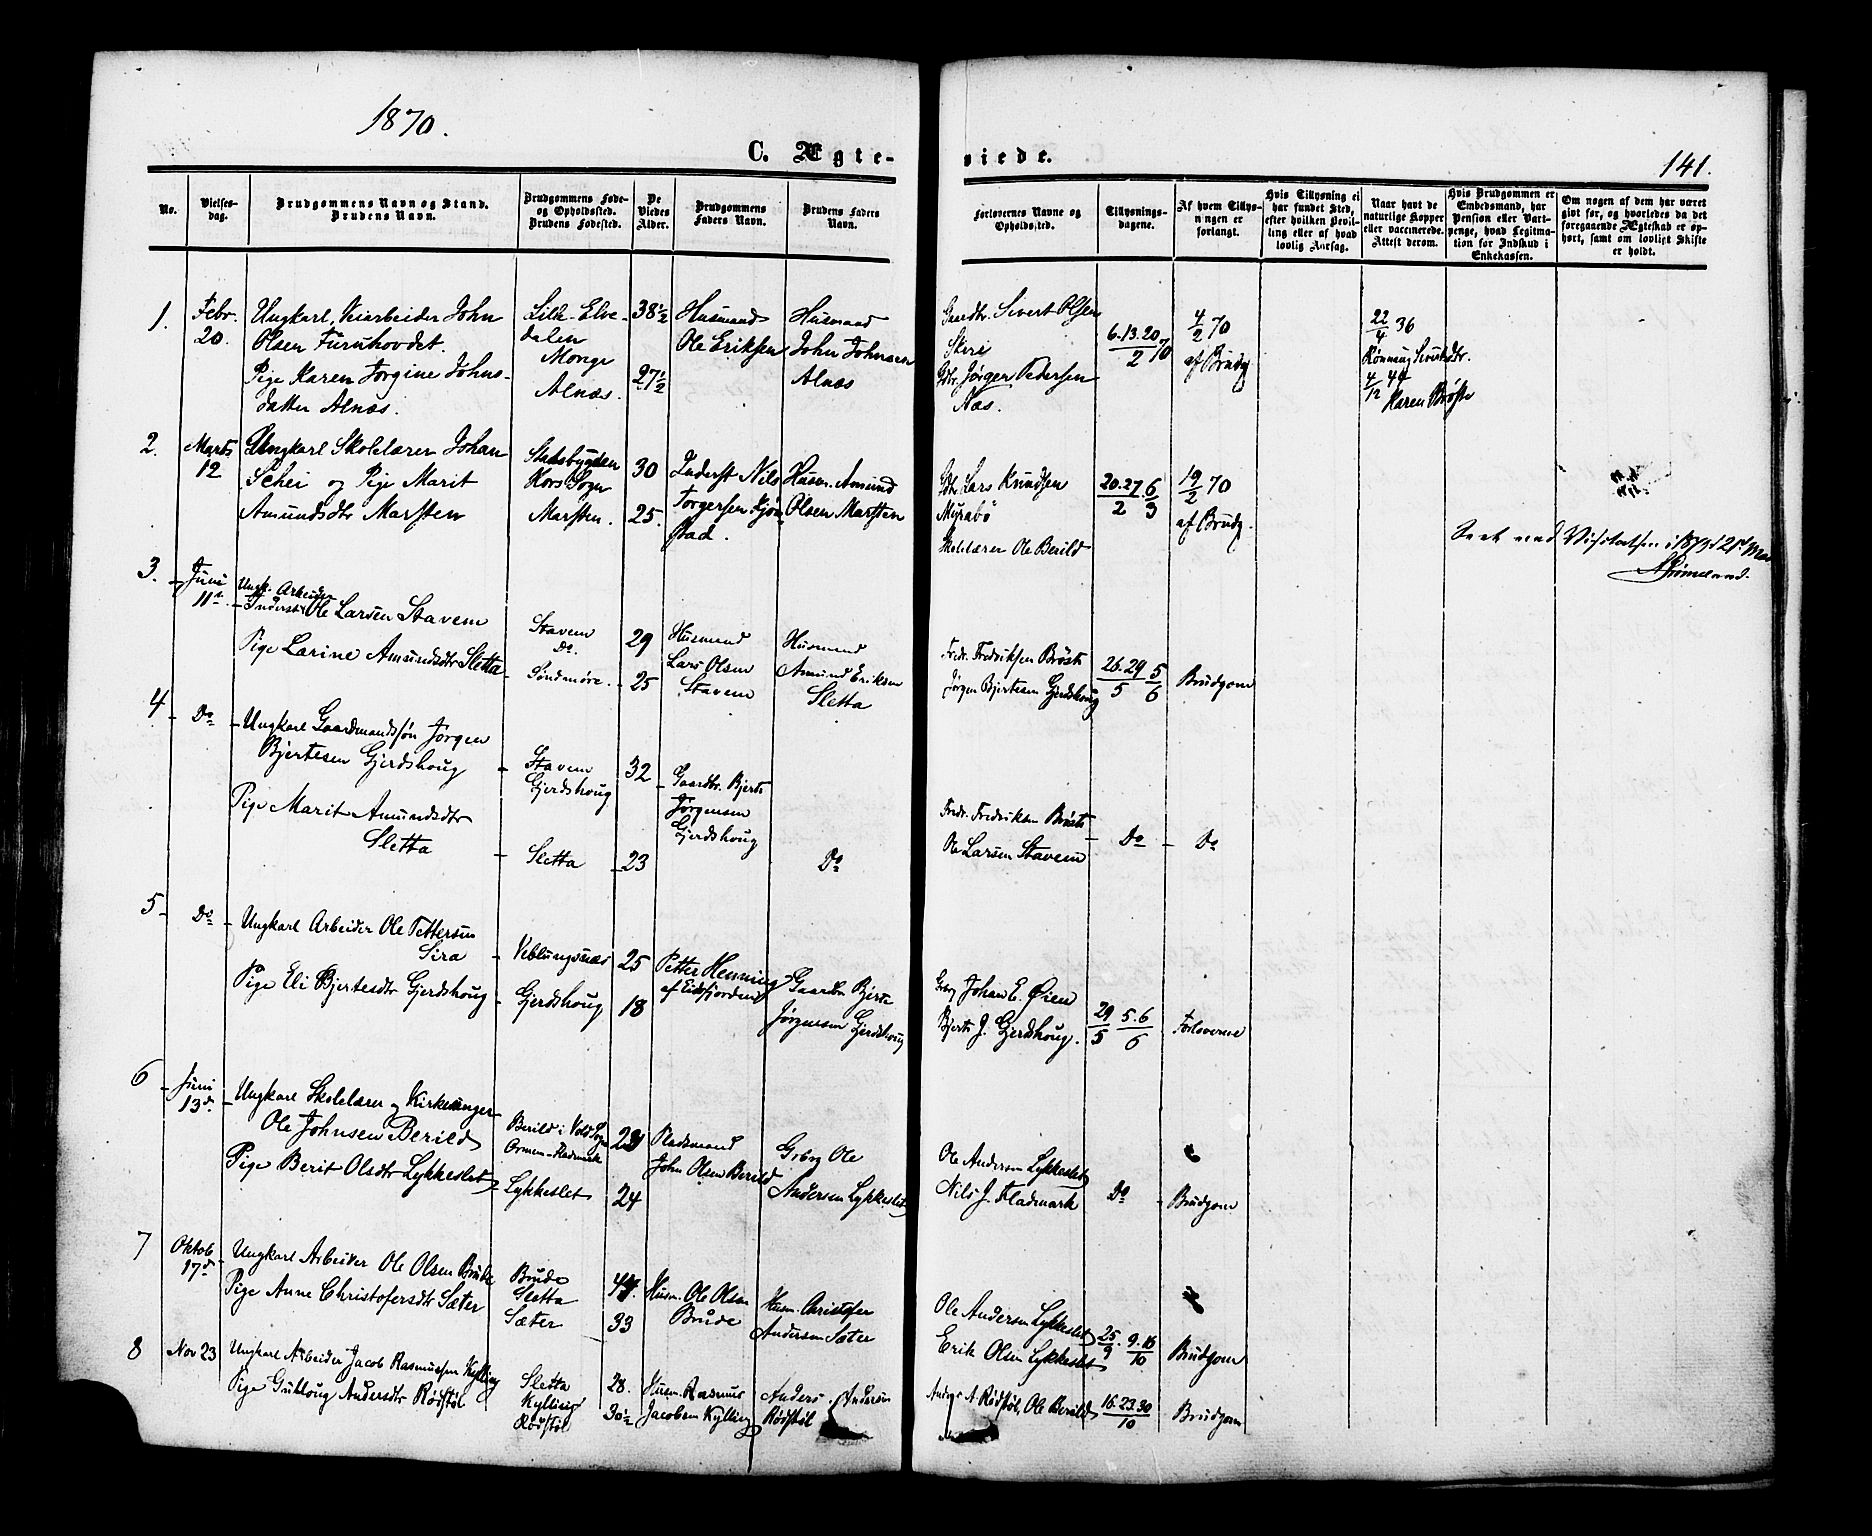 1870.
C. Ægte-
viede.
141.
No.
Vielses-
dag.
Brudgommens Navn og Stand.
Brudens Navn.
Brudgommens Føde-
og Opholdssted.
Brudens Fødested.
De
Viedes
Alder.
Brudgommens
Faders Navn.
Brudens Faders
Navn.
Forlovernes Navne og
Opholdssted.
Tillysnings-
dagene.
Af hvem Tillys-
ningen er
forlangt.
Hvis Tillysning ei
har fundet Sted,
efter hvilken Bevil-
ling eller af hvad
lovlig Aarsag.
Naar havt de
naturlige Kopper
eller vaccinerede.
Attest derom.
Hvis Brudgommen er
Embedsmand, har
Pension eller Vart-
penge, hvad Legitima-
tion for Indskud i
Enkekassen.
Om nogen af dem har været
gift før, og hvorledes da det
foregaaende Ægteskab er op-
hørt, samt om lovligt Skifte
er holdt.
1.
Febr.
20.
Ungkarl, Veiarbeider John
Olsen Furuhovdet.
Pige Karen Jorgine Johns-
datter Alnæs.
Lille-Elve-
dalen
Monge
Alnæs.
38½
27½
Husmand
Ole Eriksen
Husmand
John Johnsen
Alnæs
Gaardbr. Sivert Olsen
Skiri
Gdbr. Jørgen Pedersen
Næs.
6.13.20/2 70
4/2 70
af Brudg
22/4 36
Rønnaug Sivertsdtr.
4/12 44
Karen Brøste
2.
Marts
12
Ungkarl Skolelærer Johan
Schei og Pige Marit
Amundsdtr Marsten
Stadsbygden
Kors Sogn
Marsten.
30
25.
Inderst Nils
Torgersen Kjøn-
stad.
Husm. Amund
Olsen Marsten
Gdbr Lars Knudsen
Myrabö
Skolelærer Ole Berild
20.27/2 6/3
19/2 70
af Brudg.
Seet ved Visitatsen i 1873 d 21d Mai
3.
Juni
11te
Ungk. Arbeider
Inderst Ole Larsen Stavem
Pige Larine Amundsdtr Sletta
Stavem
Do.
Söndmöre.
29
25
Husmand
Lars Olsen
Stavem
Husmand
Amund Eriksen
Sletta
Fredr. Fredriksen Brøste
Jørgen Bjertesen Gjerdshoug
26.29/5 5/6
Brudgom
4
Do
Ungkarl Gaardmandssøn Jørgen
Bjertesen Gjerdshoug
Pige Marit Amundsdtr
Sletta
Stavem
Gjerdshoug
Sletta
32
23
Gaardbr. Bjerte
Jørgensen
Gjerdshoug
Do
Fredr. Fredriksen Brøste
Ole Larsen Stavem
Do
Do
5
Do
Ungkarl Arbeider Ole Pettersen
Sira
Pige Eli Bjertesdtr Gjerdshoug
Veblungsnæs
Gjerdshoug
25
18
Petter Henning
af Eidsfjorden
Gaardbr Bjerte
Jørgensen Gjerdshoug
Johan E. Øien
Bjerte J. Gjerdshoug.
29/5 5.6/6
Forloverne
6
Juni
13de
Ungkarl Skolelærer og Kirkesanger
Ole Johnsen Berild
Pige Berit Olsdtr Lykkeslet
Berild i Vold Sogn
Ormem-Fladmark
Lykkeslet
24
Pladsmand
John Olsen Berild
Gbrg Ole
Andersen Lykkeslet
Ole Andersen Lykkeslet
Nils J. Fladmark
Do
Brudgom
7
Oktob
17de
Ungkarl Arbeider Ole Olsen Brude
Pige Anne Christofersdtr Sæter
Brude
Sletta
Sæter
44.
33
Husm. Ole Olsen
Brude
Husm. Christofer
Andersen Sæter
Ole Andersen Lykkeslet
Erik Olsen Lykkeslet
25/9. 9.16/10
Brudgom
8
Nov 23
Ungkarl Arbeider Jacob Rasmussen Kylling
Pige Guhloug Andersdtr Rødstøl
Sletta
Kylling
Rødstøl
28.
30½
Husm. Rasmus
Jacobsen Kylling
Anders Andersen
Rødstøl
Anders A. Rødstøl, Ole Berild
16.23.30/10
Brudgom